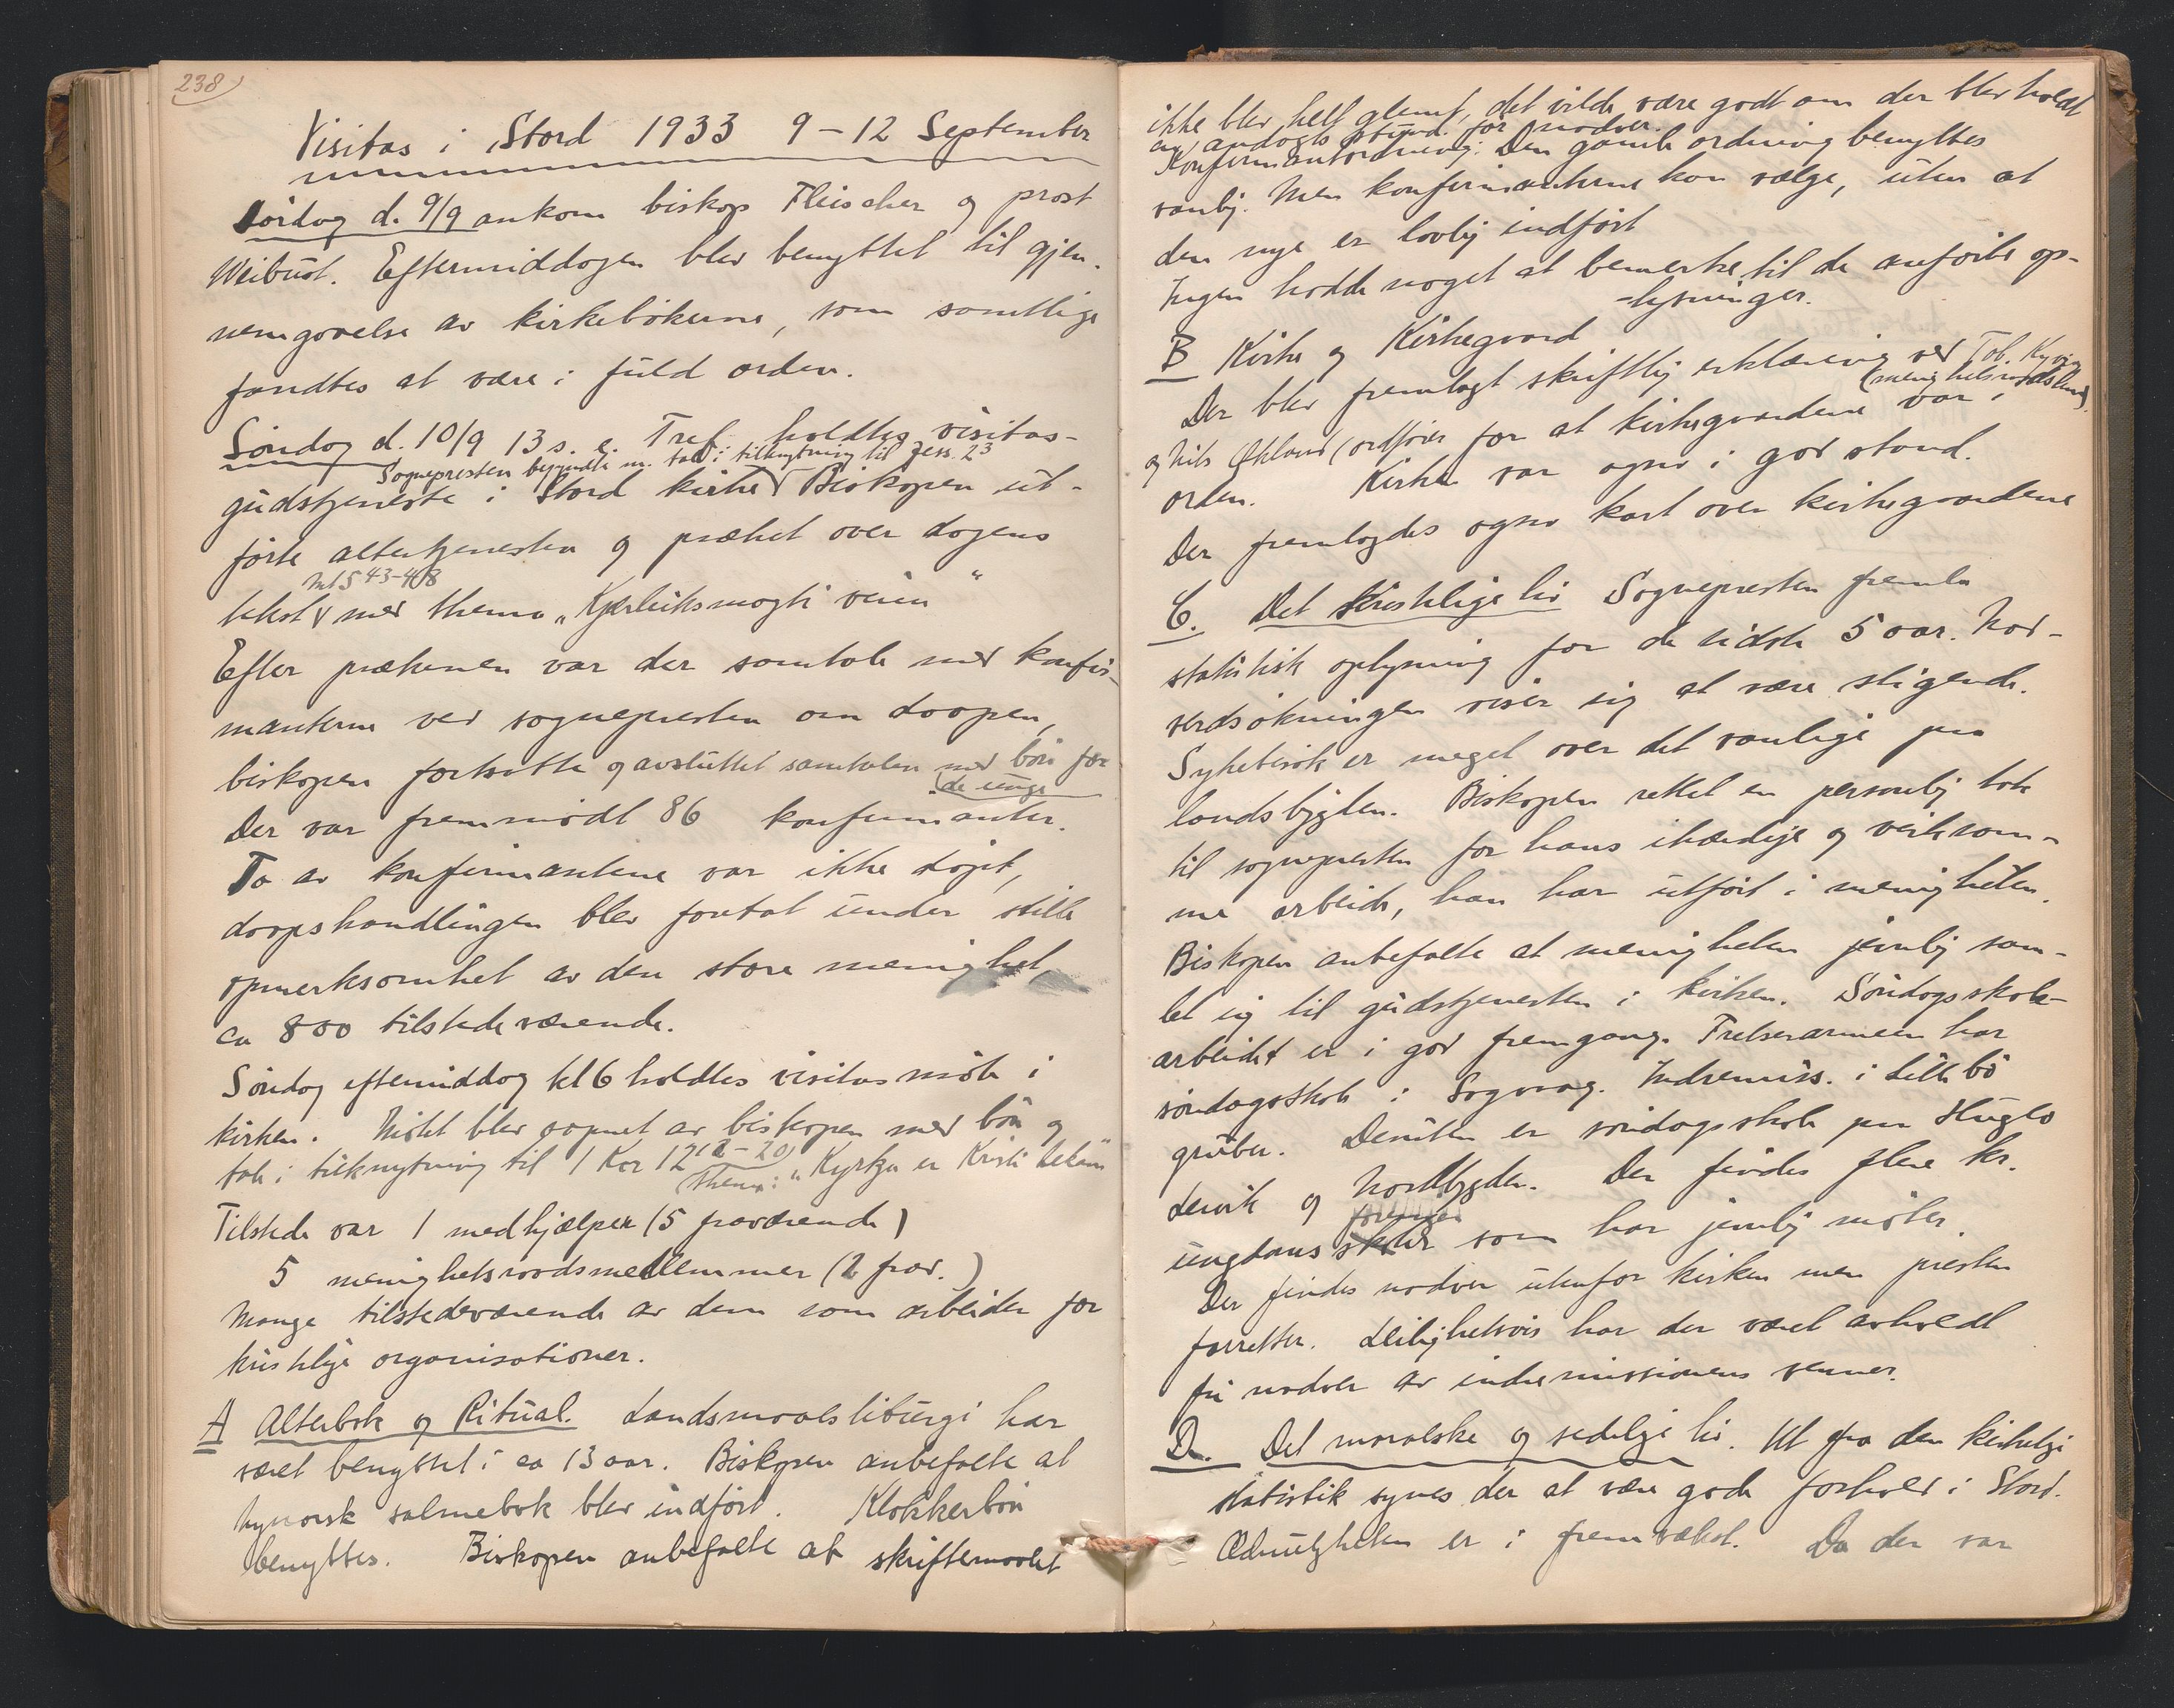 238
Visitas i Stord 1933 9–12 September
Lördag d. 9/9 ankom biskop Fleischer og prost
Weibust. Eftermiddagen blev benyttet til gjen-
nemgaaelse av kirkebökerne, som samtlige
fandtes at være i fuld orden.
Söndag d. 10/9 13 s. e. Tref. holdtes visitas-
Sognepresten begyndte m. tale i tilknytning til Jess. 2³
gudstjeneste i Stord kirke Biskopen ut-
förte altertjenesten og præket over dagens
Mt 5 43-48
tekst med thema „Kjærleiksmagti vinn"
Efter prækenen var der samtale med konfir-
manterne ved sognepresten om daapen,
biskopen fortsatte og avsluttet samtalen med bön for
(de unge
Der var fremmödt 86 konfirmanter.
To av konfirmantene var ikke döpt,
daapshandlingen blev foretat under stille
opmerksomhet av den store menighet,
ca 800 tilstedeværende.
Söndag eftermiddag kl 6 holdtes visitasmöte i
kirken. Mötet blev aapnet av biskopen med bön og
tale i tilknytning til 1 Kor 12 12-20
thema: "Kyrkja er Kristi lekam"
Tilstede var 1 medhjælper (5 fraværende)
5 menighetsraadsmedlemmer (2 frav.)
Mange tilstedeværende av dem som arbeider for
kristelige organisationer.
A Alterbok og Ritual. Landsmaalsliturgi har
været benyttet i ca 13 aar. Biskopen anbefalte at
Nynorsk salmebok blev indfört. Klokkerbön
benyttes. Biskopen anbefalte at skriftemaalet
ikke blev helt glemt, det vilde være godt om der blev holdt
en andagts stund for nadver.
Konfirmantordning: Den gamle ordning benyttes
vanlig. Men konfirmanterne kan vælge, uten at
den nye er lovlig indfört
Ingen hadde noget at bemerke til de anförte op-
-lysninger.
B Kirke og Kirkegaard
Der blev fremlagt skriftlig erklæring ved Tob. Kyvig
(menighetsraadslem)
og Nils Økland (ordförer for at kirkegaardene var i
orden. Kirken var ogsaa i god stand.
Der fremlagdes ogsaa kart over kirkegaardene
C. Det kristelige liv Sognepresten fremla
statistisk oplysning for de sidste 5 aar. Nad-
verdsökningen viser sig at være stigende.
Sykebesök er meget over det vanlige paa
landsbygden. Biskopen rettet en personlig tak
til sognepresten for hans ihærdige og virksom-
me arbeide, han har utfört i menigheten.
Biskopen anbefalte at menigheten jevnlig sam-
let sig til gudstjenesten i kirken. Söndagsskole-
arbeidet er i god fremgang. Frelsesarmeen har
söndagsskole i Sagvaag. Indremiss. i Litlabö
gruber. Desuten er söndagsskole paa Huglo
Lervik og Nordbygden. Der findes flere kr.
ungdoms som har jevnlig möter.
Der findes nadver utenfor kirken men presten
forretter. Leilighetsvis har der været avholdt
fri nadver av indremissionens venner.
D. Det moralske og sedelige liv. Ut fra den kirkelige
statistik synes der at være gode forhold i Stord.
Ædrueligheten er i fremvækst. Da der var